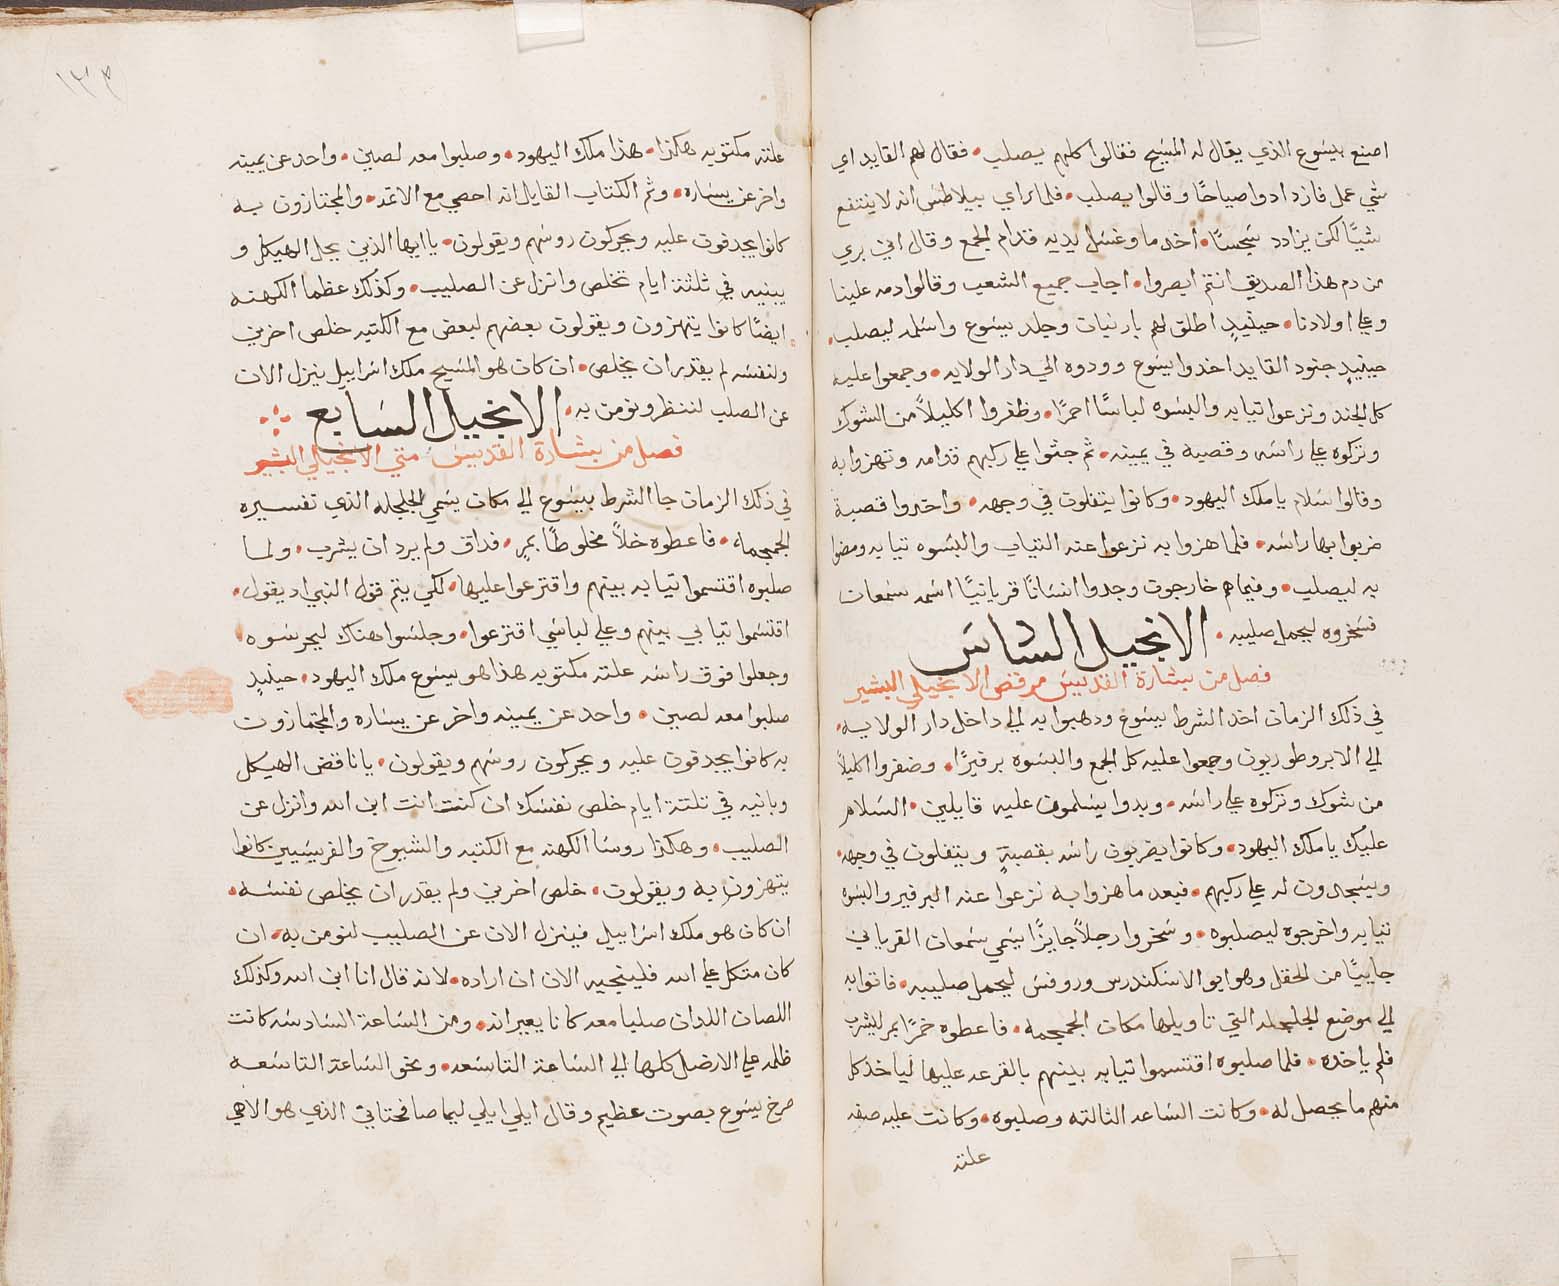 اصنع بيسوع الذي يقال له المسيح فقالوا كلهم يصلب • فقال لهم القايد اي
شي عمل فازدادوا صياحًا وقالوا يصلب • فلما راي بيلاطس انه لا ينتفع
شيًا لكن يزداد سجسًا • اخد ما وغسل يديه قدام الجمع وقال اني بري
من دم هذا الصديق انتم ابصروا • اجاب جميع الشعب وقالوا دمه علينا
وعلي اولادنا • حينيدٍ اطلق لهم بارنبان وجلد يسوع واسلمه ليصلب •
حينيدٍ جنود القايد اخدوا يسوع وودوه الي دار الولايه • وجمعوا عليه
كل الجند ونزعوا تيابه والبسوه لباسًا احمرًا • وظفروا اكليلاً من الشوك
وتركوه علي راسه وقصبة في يمينه • ثم جثوا علي ركبهم قدامه وتهزوا به
وقالوا سلام يا ملك اليهود • وكانوا يتفلون في وجهه • واخدوا قصبة
ضربوا بها راسه • فلما هزوا به نزعوا عنه التياب والبسوه تيابه ومضوا
به ليصلب • وفيما هم خارجون وجدوا انسانًا قريانيًا اسمه سمعان
فسخروه ليحمل صليبه • الانجيل السادس
فصل من بشارة القديس مرقص الانجيلي البشير
في ذلك الزمان اخد الشرط يسوع ودهبوا به الي داخل دار الولايه •
الي الابروطوريون وجمعوا عليه كل الجمع والبسوه برفيرًا • وضفروا اكليلاً
من شوك وتركوه علي راسه • وبدوا يسلمون عليه قايلين • السلام
عليك يا ملك اليهود • وكانوا يضربون راسه بقصبةٍ ويتفلون في وجهه •
ويسجدون له علي ركبهم • فبعد ما هزوا به نزعوا عنه البرفير والبسوه
تيابه واخرجوه ليصلبوه • وسخروا رجلاً جايزًا يسمي سمعان القرياني
جاييًا من الحقل وهو ابو الاسكندرس وروفس ليحمل صليبه • فاتوا به
الي موضع الجلجله التي تاويلها مكان الجمجمه • فاعطوه خمرًا بمر ليشرب
فلم ياخده • فلما صلبوه اقتسموا تيابه بينهم بالقرعه عليها لياخذ كل
منهم ما يحصل له • وكانت الساعه الثالته وصلبوه • وكانت عليه صفه
علته
علته مكتوبه هكذا • هذا ملك اليهود • وصلبوا معه لصين • واحد عن يمينه
واخر عن يساره • وثم الكتاب القايل انه احصي مع الاتمه • والمجتازون به
كانوا يجدفون عليه ويحركون روسهم ويقولون • يا ايها الذي يحل الهيكل و
يبنيه في ثلثة ايام تخلص وانزل عن الصليب • وكذلك عظما الكهنه
ايضًا كانوا يتهزون ويقولون بعضهم لبعض مع الكتبه خلص اخرين
ولنفسه لم يقدر ان يخلص • ان كان هو المسيح ملك اسراييل ينزل الان
عن الصلب لننظر ونومن به • الانجيل السابع
فصل من بشارة القديس متي الانجيلي البشير
في ذلك الزمان جا الشرط بيسوع الي مكان يسمي الجلجله الذي تفسيره
الجمجمه • فاعطوه خلاً مخلوطًا بمرٍ • فداق ولم يرد ان يشرب • ولما
صلبوه اقتسموا تيابه بينهم واقترعوا عليها • لكي يتم قول النبي اد يقول •
اقتسموا تيابي بينهم وعلي لباسي اقترعوا • وجلسوا هناك ليحرسوه
وجعلوا فوق راسه علته مكتوبه هذا هو يسوع ملك اليهود • حينيدٍ
صلبوا معه لصين • واحد عن يمينه واخر عن يساره والمجتازون
به كانوا يجدفون عليه ويحركون روسهم ويقولون • يا ناقض الهيكل
وبانيه في تلتة ايام خلص نفسك ان كنت انت ابن الله وانزل عن
الصليب • وهكذا روسا الكهنه مع الكتبه والشيوخ والفريسيين كانوا
يتهزون به ويقولون • خلص اخرين ولم يقدر ان يخلص نفسه •
ان كان هو ملك اسراييل فينزل الان عن الصليب لنومن به • ان
كان متكل علي الله فلينجيه الان ان اراده • لانه قال انا ابن الله وكذلك
اللصان اللدان صلبا معه كانا يعيرانه • ومن الساعة السادسه كانت
ظلمه علي الارض كلها الي الساعة التاسعه • ونحو الساعة التاسعه
صرخ يسوع بصوت عظيم وقال ايلي ايلي ليما صافختاني الذي هو الاهي